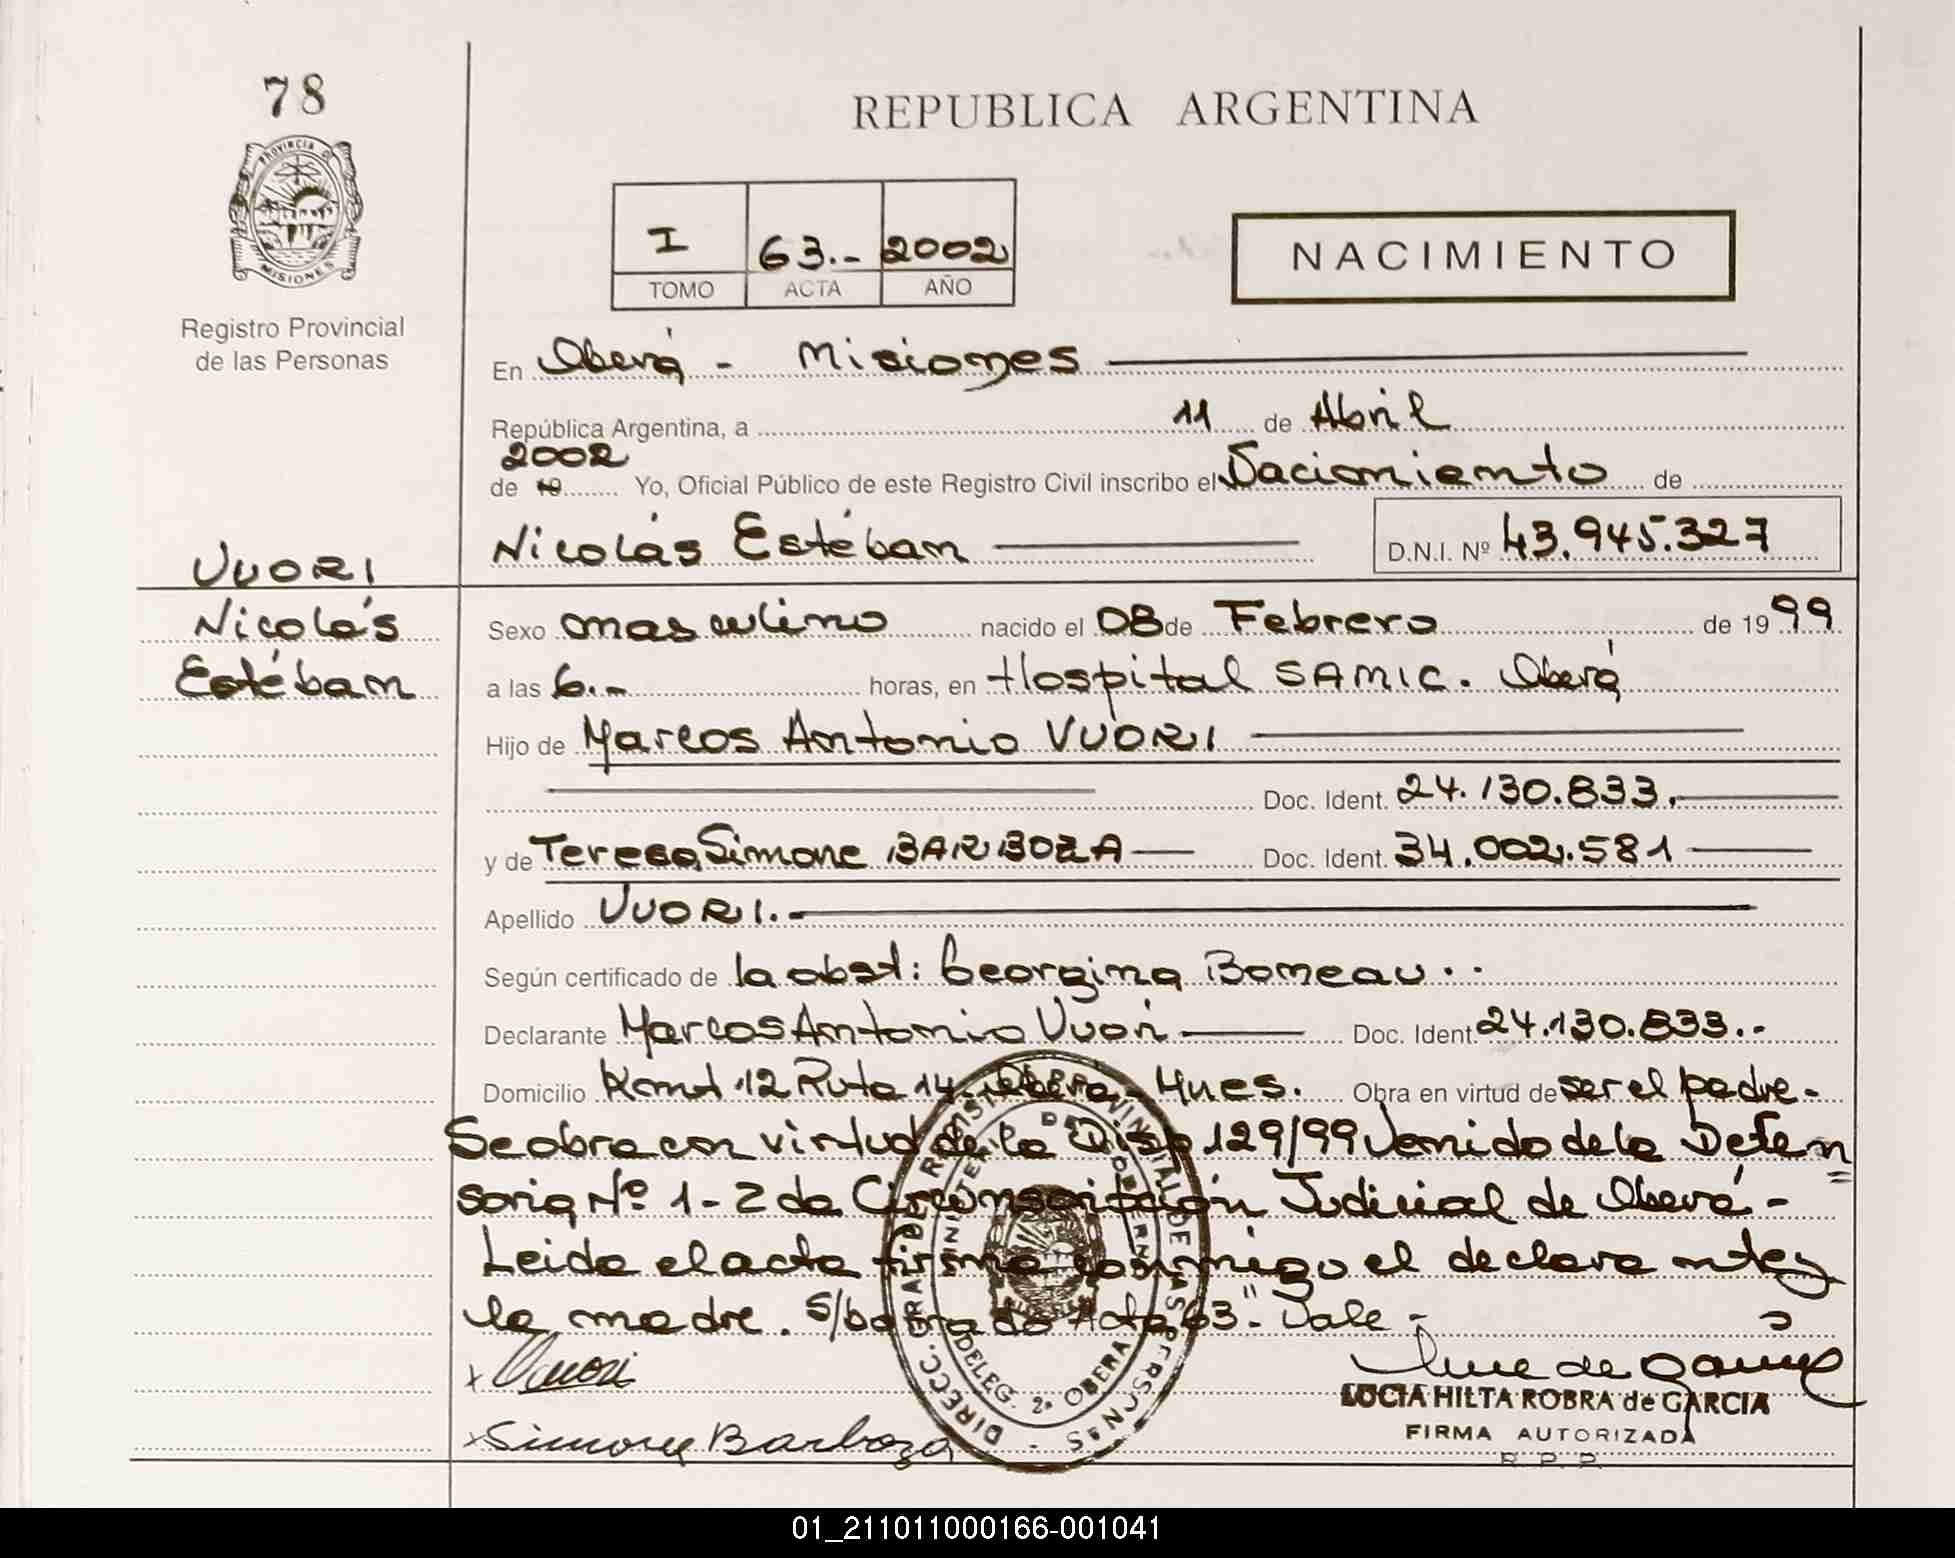 78
REPUBLICA ARGENTINA
PROVINCIA D
MISIONES
Registro Provincial
de las Personas
I 63.- 2002
TOMO ACTA AÑO
NACIMIENTO
En Oberá - Misiones
República Argentina, a 11 de Abril
2002
de 19 Yo, Oficial Público de este Registro Civil inscribo el Nacimiento de
Nicolás Estéban D.N.I. Nº 43.945.327
VUORI
Nicolás
Estéban
Sexo masculino nacido el 08 de Febrero de 1999
a las 6.- horas, en Hospital SAMIC. Oberá
Hijo de Marcos Antonio VUORI
Doc. Ident. 24.130.833.
y de Teresa Simone BARBOZA Doc. Ident. 34.002.581
Apellido VUORI.-
Según certificado de la obst: Georgina Boneau..
Declarante Marcos Antonio Vuori Doc. Ident. 24.130.833.-
Domicilio Kmt 12 Ruta 14. Oberá Mnes. Obra en virtud de ser el padre.-
Se obra con virtud de la Disp 129/99 Venido de la Defen
soria Nº 1-2da Circunscripción Judicial de Oberá-
Leida el acta firma conmigo el declarante y
la madre. S/borrado Acta 63" Vale-
x Vuori
x Simone Barboza
DIRECC. GRAL. DEL REGISTRO PROVINCIAL DE LAS PERSONAS
MINISTERIO DE GOBIERNO
DELEG. 2ª OBERA
LUCIA HILTA ROBRA de GARCIA
FIRMA AUTORIZADA
R. P. P.
01_211011000166-001041